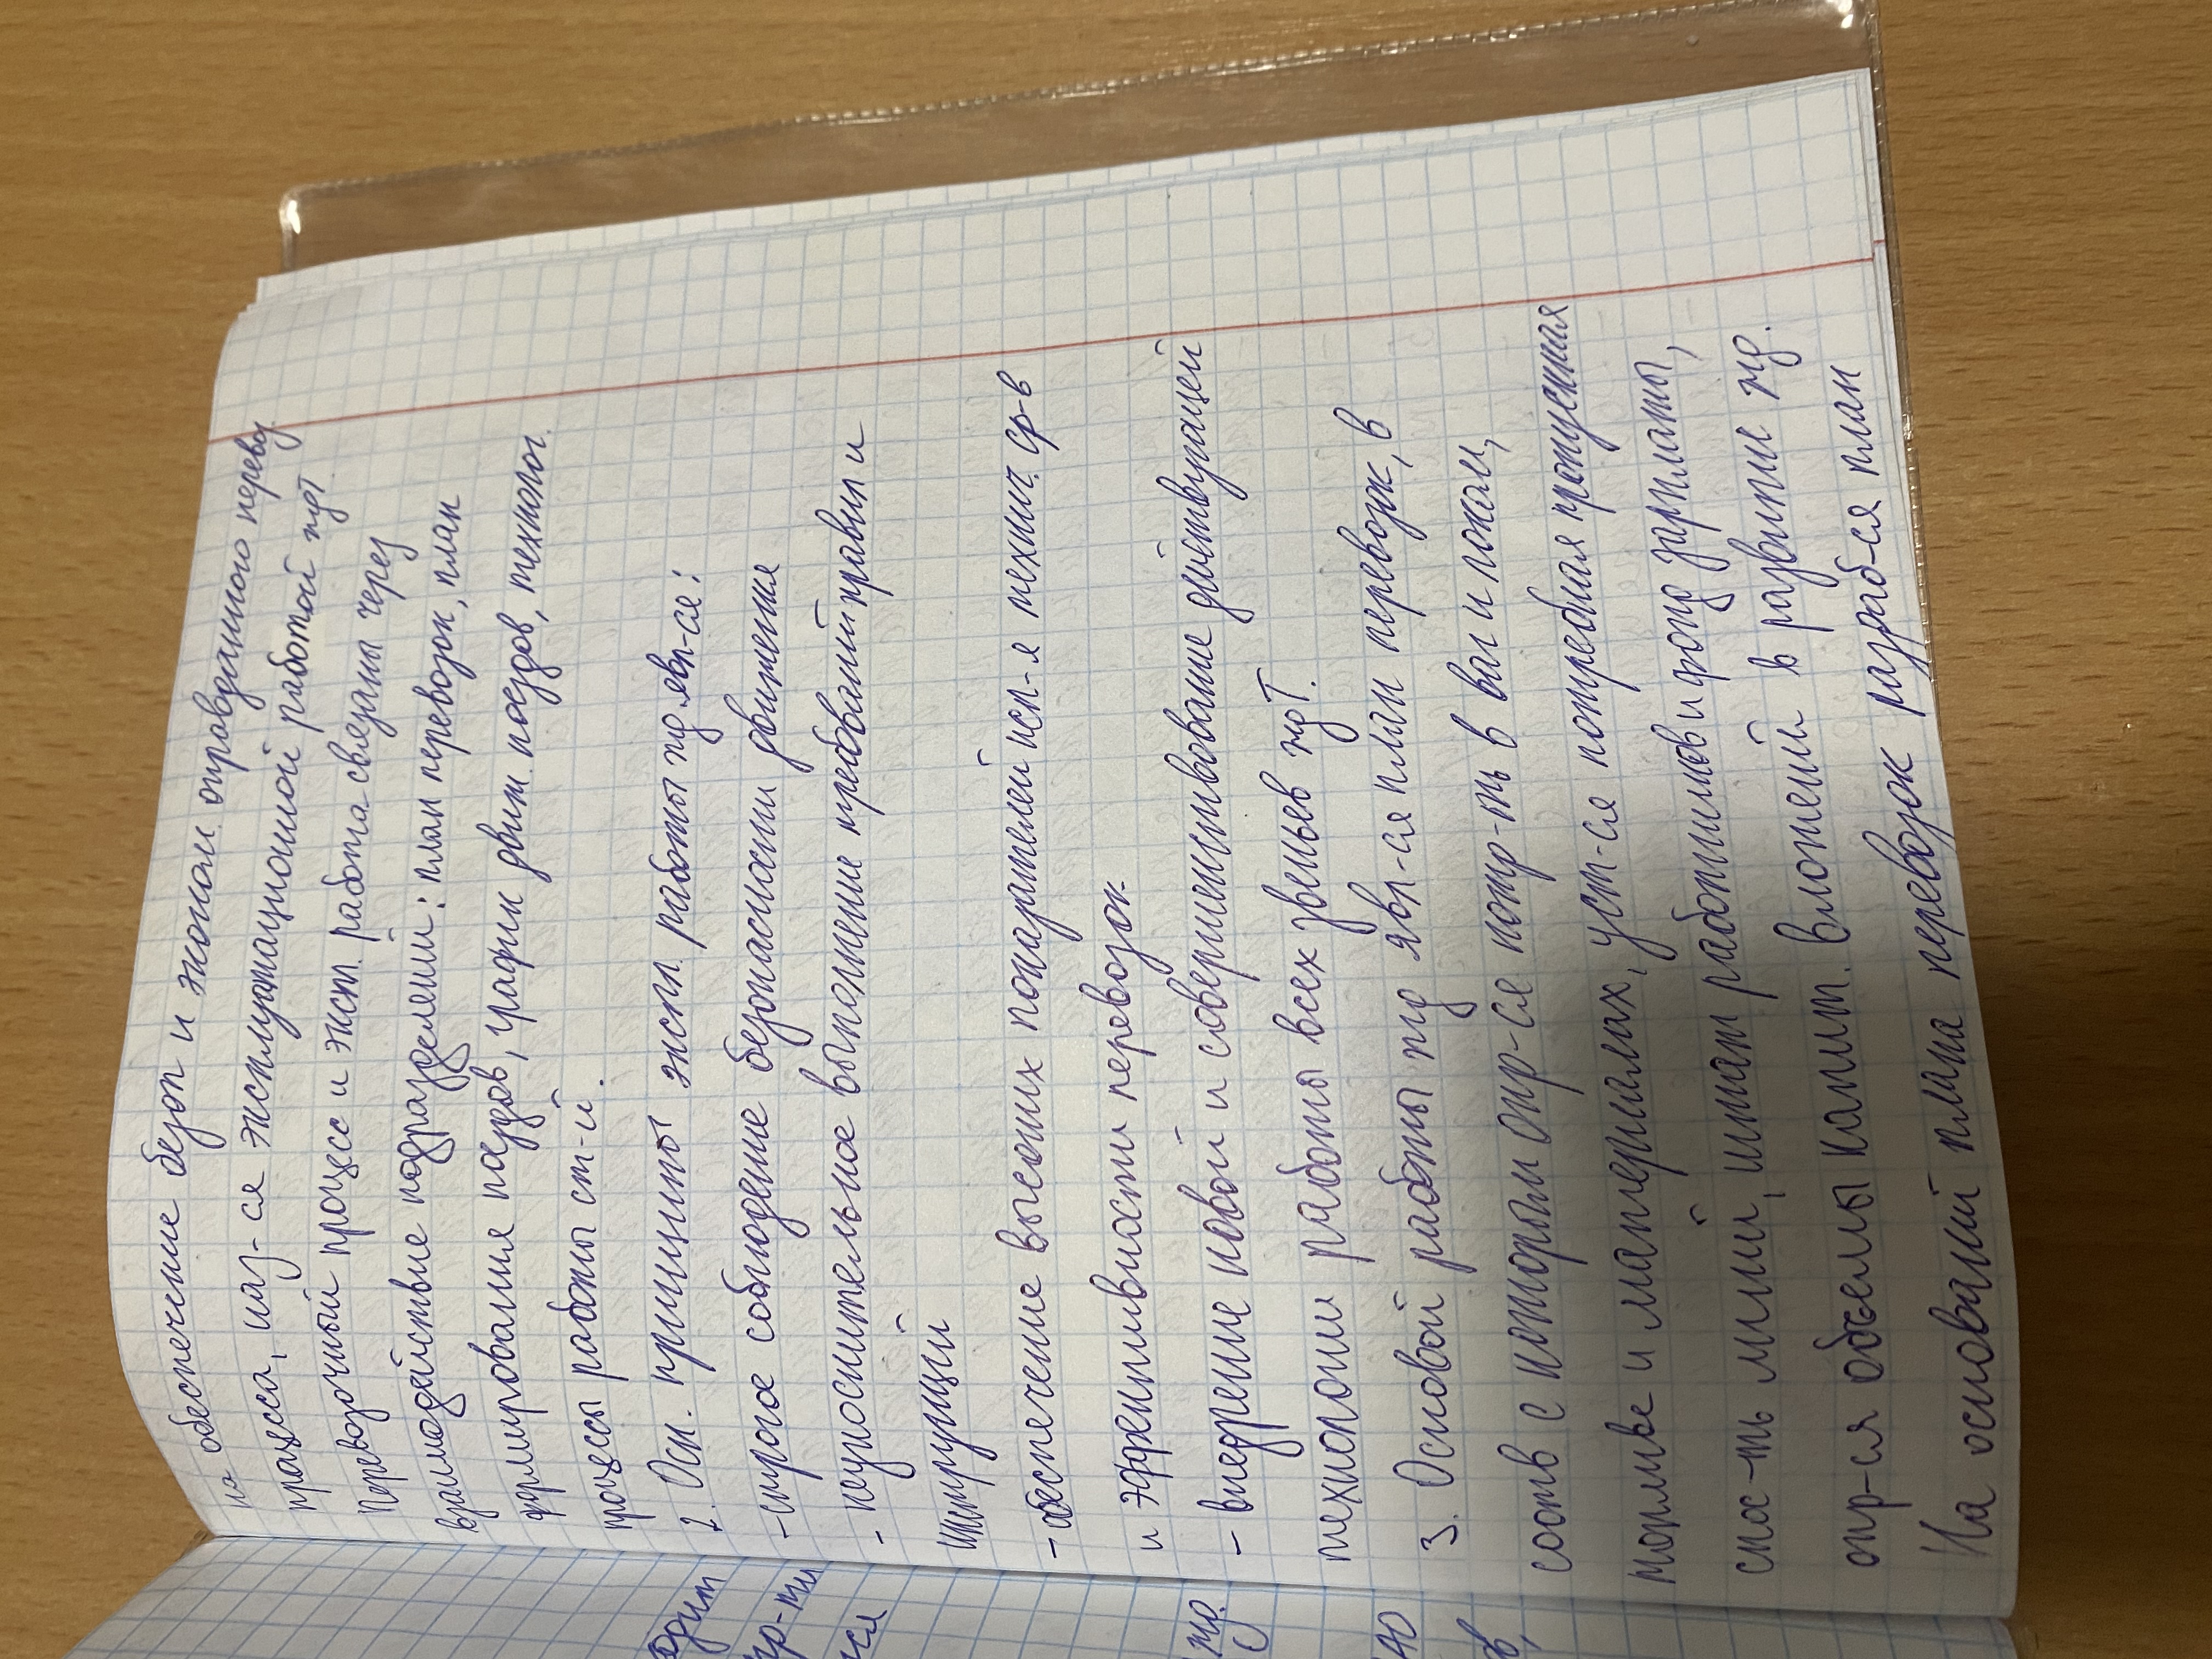 на обеспечение безоп и эконом. оправданного перевоз.
процесса, наз-ся эксплуатационной работой ждт.
Перевозочный процесс и экспл. работа связаны через
взаимодействие подразделений: план перевозок, план
формирования поездов, график движ. поездов, технолог.
процессы работы ст-й.
2. Осн. принципы экспл. работы жд явл-ся:
- строгое соблюдение безопасности движения
- неукоснительное выполнение требований правил и
инструкций
- обеспечение высоких показателей исп-я технич. ср-в
и эффективности перевозок
- внедрение новой и совершенствование действующей
технологии работы всех звеньев ждт.
3. Основой работы жд явл-ся план перевозок, в
соотв с которым опр-ся потр-ть в ваг и локом,
топливе и материалах, уст-ся потребная пропускная
спос-ть линий, штат работников и фонд зарплаты,
опр-ся объемы капит. вложений в развитие жд.
На оснований плана перевозок разраб-ся план
одит
пр-ти
жд.